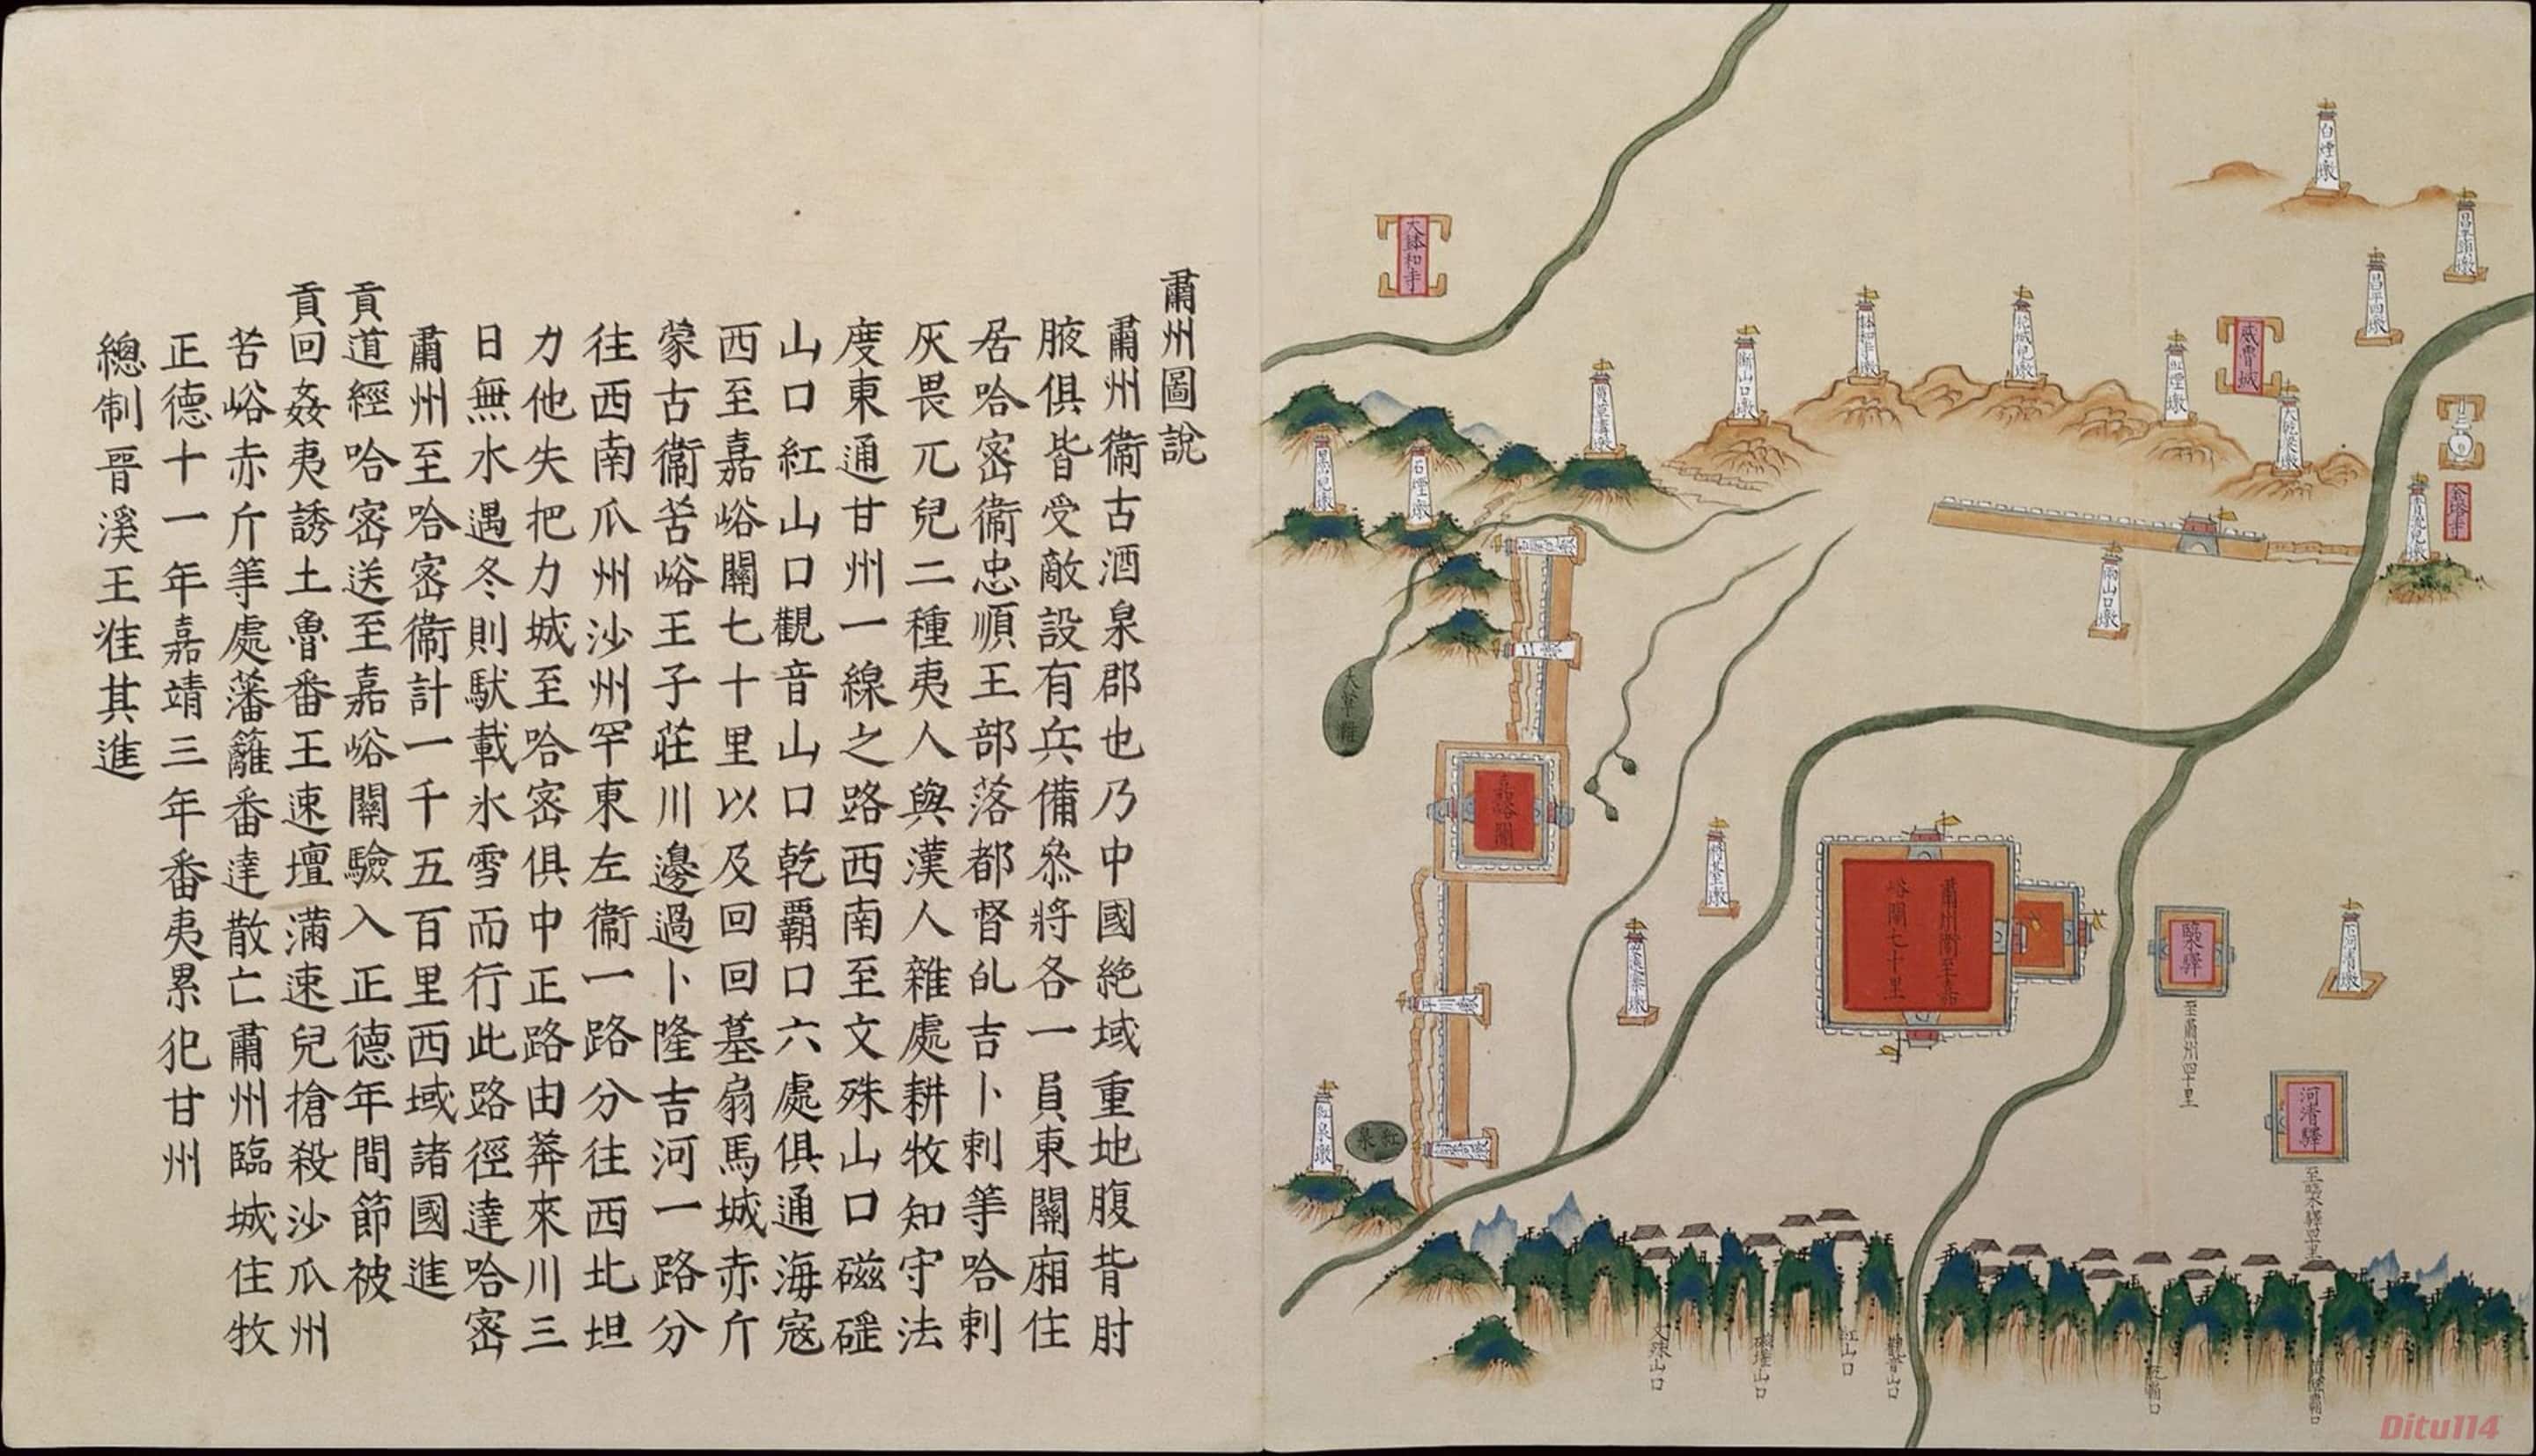 肅州圖說
肅州衞古酒泉郡也乃中國絶域重地腹背肘
腋俱皆受敵設有兵備叅將各一員東關廂住
居哈密衞忠順王部落都督乩吉卜剌等哈剌
灰畏兀兒二種夷人人與漢人雜處耕牧知守法
度東通甘州一線之路西南至文殊山口磁䃮
山口紅山口觀音山口乾覇口六處俱通海寇
西至嘉峪關七十里以及回回墓扇馬城赤斤
蒙古衞苦峪王子莊川邊過卜隆吉河一路分
往西南瓜州沙州罕東左衞一路分往西北坦
力他失把力城至哈密俱中正路由莽來川三
日無水遇冬則馱載氷雪而行此路徑達哈密
肅州至哈密衞計一千五百里西域諸國進
貢道經哈密送至嘉峪關驗入正德年間節被
貢回姦夷誘土魯番王速壇滿速兒搶殺沙瓜州
苦峪赤斤等處藩籬番達散亡肅州臨城住牧
正德十一年嘉靖三年番夷累犯甘州
總制晉溪王
其進
大鉢和寺
白煙墩
昌平四墩
威虜城
金塔寺
斷山口墩
石煙墩
兩山口墩
大草灘
嘉峪關
肅州衞至嘉
峪關七十里
臨水驛
至肅州四十里
下河清墩
河清驛
至臨水驛四十里
紅泉墩
紅泉
文殊山口
紅山口
觀音山口
Ditu114